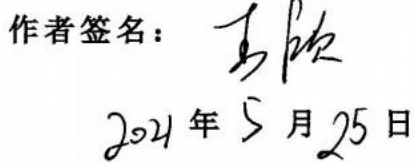 作者签名：
2021年5月25日